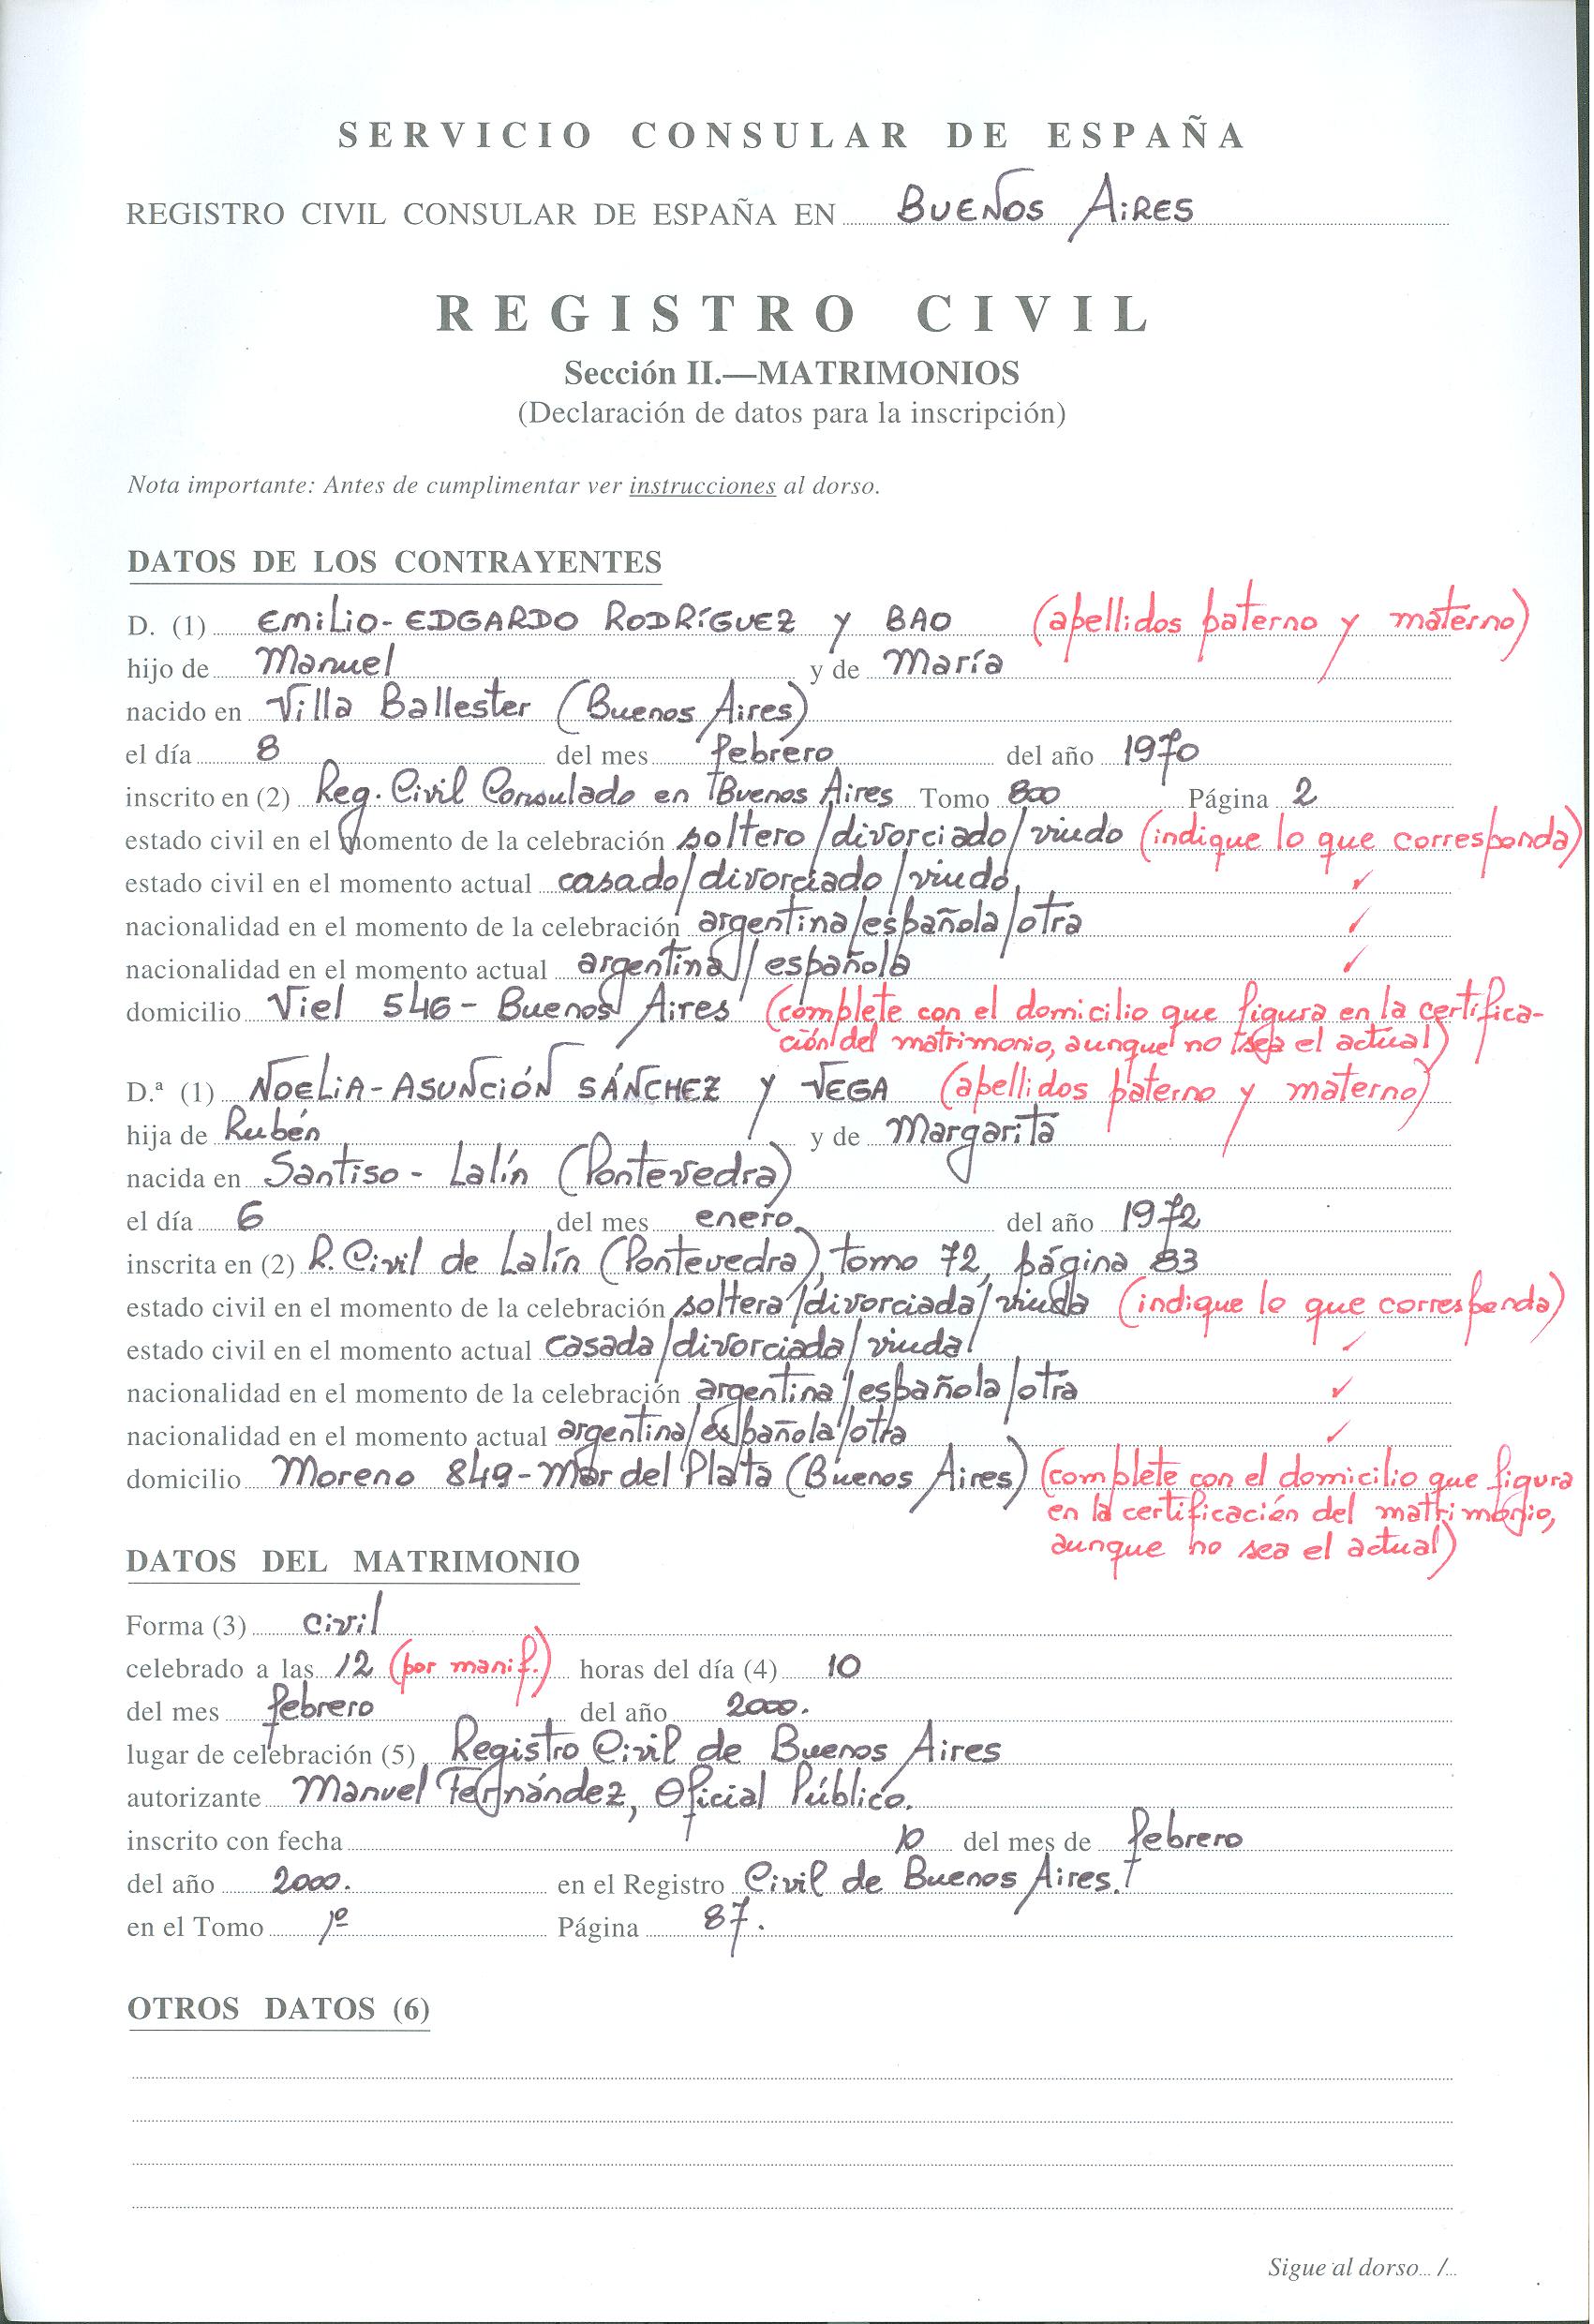 SERVICIO CONSULAR DE ESPAÑA
REGISTRO CIVIL CONSULAR DE ESPAÑA EN BUEÑOS AIRES
REGISTRO CIVIL
Sección II.—MATRIMONIOS
(Declaración de datos para la inscripción)
Nota importante: Antes de cumplimentar ver instrucciones al dorso.
DATOS DE LOS CONTRAYENTES
D. (1) EMILIO-EDGARDO RODRÍGUEZ y BAO (apellidos paterno y materno)
hijo de Manuel y de María
nacido en Villa Ballester (Buenos Aires)
el día 8 del mes febrero del año 1970
inscrito en (2) Reg. Civil Consulado en Buenos Aires Tomo 800 Página 2
estado civil en el momento de la celebración soltero/divorciado/viudo (indique lo que corresponda)
estado civil en el momento actual casado/divorciado/viudo ✓
nacionalidad en el momento de la celebración argentina/española/otra ✓
nacionalidad en el momento actual argentina/española ✓
domicilio Viel 546 - Buenos Aires (complete con el domicilio que figura en la certifica-
ción del matrimonio, aunque no sea el actual)
D.ª (1) NOELIA-ASUNCIÓN SÁNCHEZ y VEGA (apellidos paterno y materno)
hija de Rubén y de Margarita
nacida en Santiso - Lalín (Pontevedra)
el día 6 del mes enero del año 1972
inscrita en (2) R. Civil de Lalín (Pontevedra), tomo 72, página 83
estado civil en el momento de la celebración soltera/divorciada/viuda (indique lo que corresponda)
estado civil en el momento actual casada/divorciada/viuda ✓
nacionalidad en el momento de la celebración argentina/española/otra ✓
nacionalidad en el momento actual argentina/española/otra ✓
domicilio Moreno 849-Mar del Plata (Buenos Aires) (complete con el domicilio que figura
en la certificación del matrimonio,
aunque no sea el actual)
DATOS DEL MATRIMONIO
Forma (3) civil
celebrado a las 12 (por manif.) horas del día (4) 10
del mes febrero del año 2000.
lugar de celebración (5) Registro Civil de Buenos Aires
autorizante Manuel Fernández, Oficial Público.
inscrito con fecha 10 del mes de febrero
del año 2000. en el Registro Civil de Buenos Aires.
en el Tomo 1º Página 87.
OTROS DATOS (6)
Sigue al dorso... /...